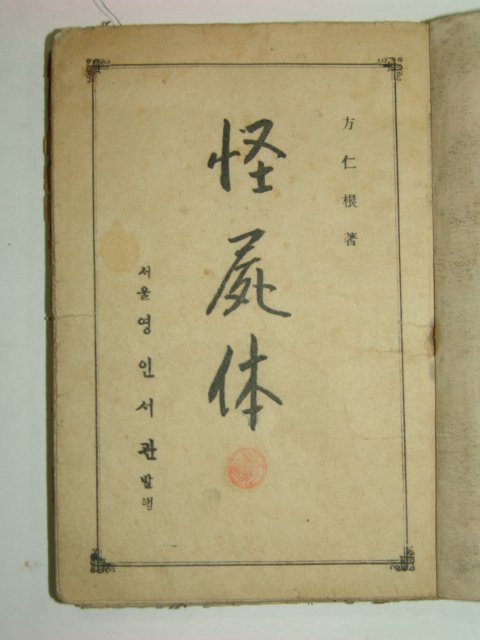 方仁根著
怪屍体
서울 영인서관 발행